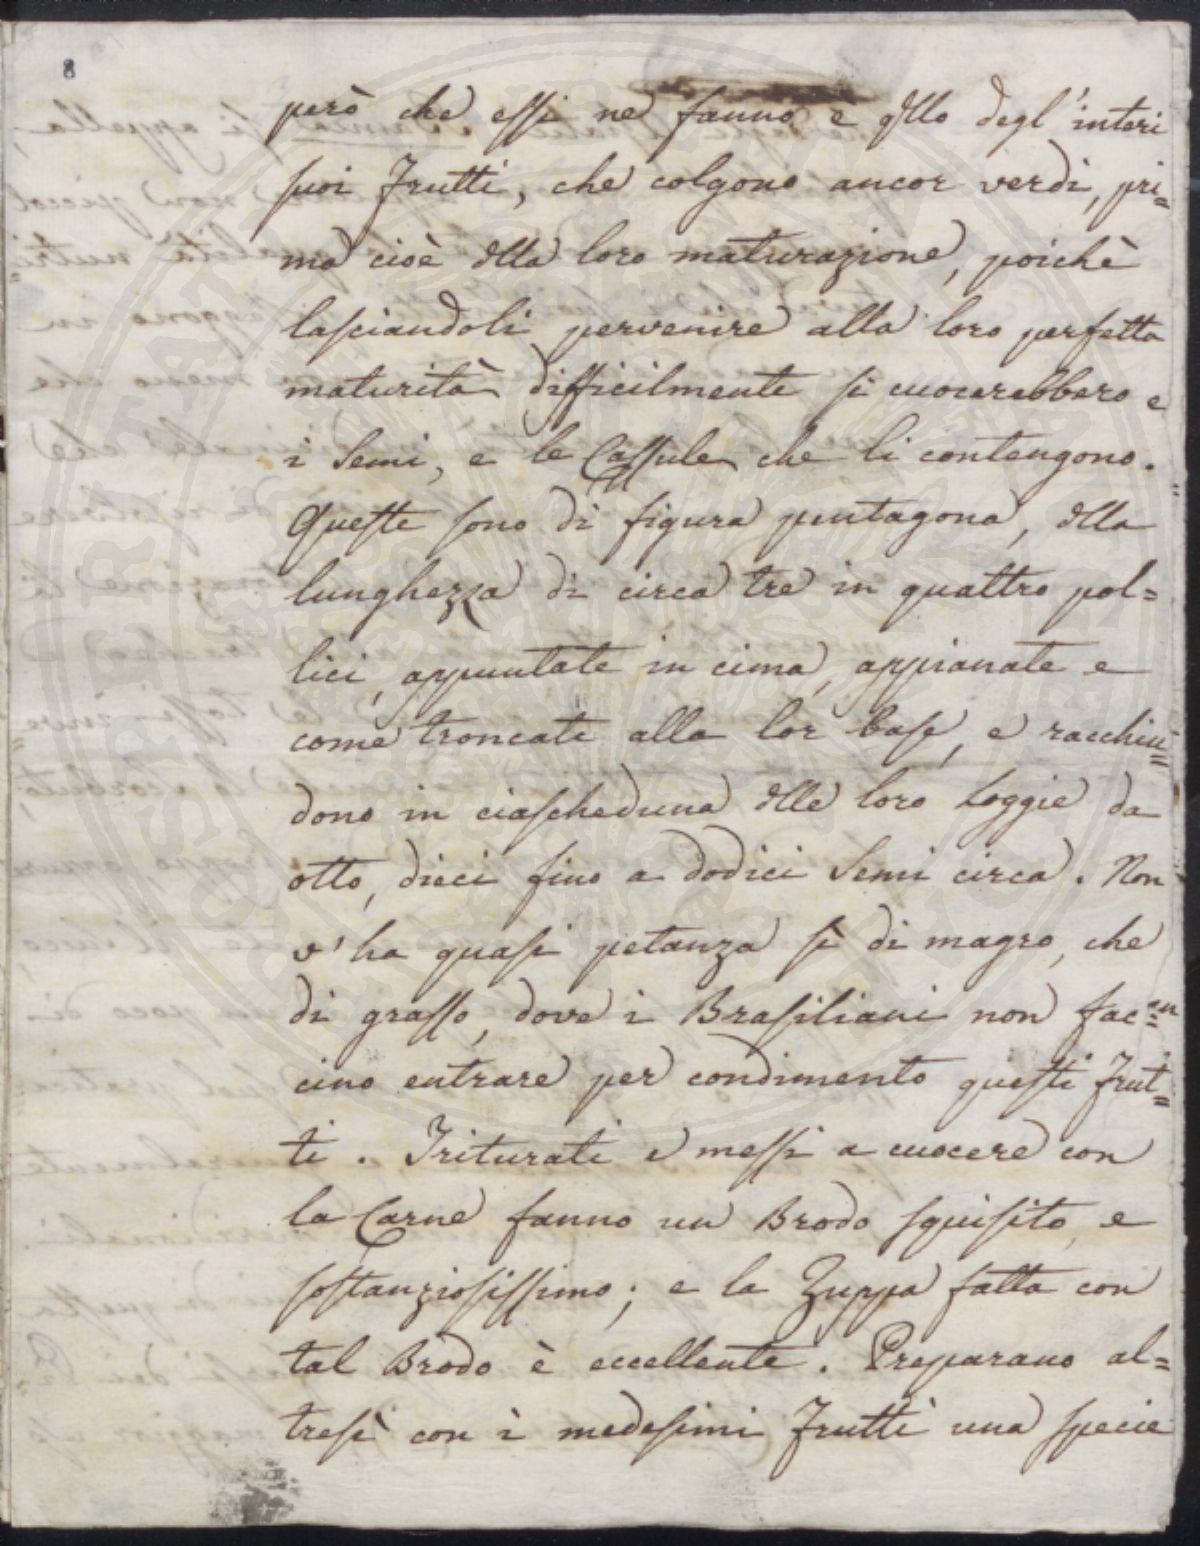 8
però che essi ne fanno è qllo degl'interi
suoi Frutti, che colgono ancor verdi, pri=
ma cioè dlla loro maturazione, poichè
lasciandoli pervenire alla loro perfetta
maturità difficilmente si cuocerebbero e
i Semi, e le Cassule che li contengono.
Queste sono di figura pentagona, dlla
lunghezza di circa tre in quattro pol=
lici, appuntate in cima, appianate e
come troncate alla lor base, e racchiu=
dono in ciascheduna dlle loro Loggie da
otto, dieci fino a dodici Semi circa. Non
v'ha quasi petanza sì di magro, che
di grasso, dove i Brasiliani non fac=
cino entrare per condimento questi Frut=
ti. Triturati e messi a cuocere con
la Carne fanno un Brodo squisito, e
sostanziosissimo; e la Zuppa fatta con
tal Brodo è eccellente. Preparano al=
tresì con i medesimi Frutti una specie